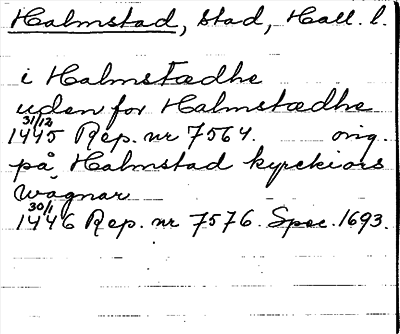 Halmstad, stad, Hall. l.
i Halmstædhe
uden for Halmstædhe
31/12
1445 Rep. nr 7564. orig.
på Halmstad kyrckiors
wagnar
30/1
1446 Rep. nr 7576. Spec. 1693.